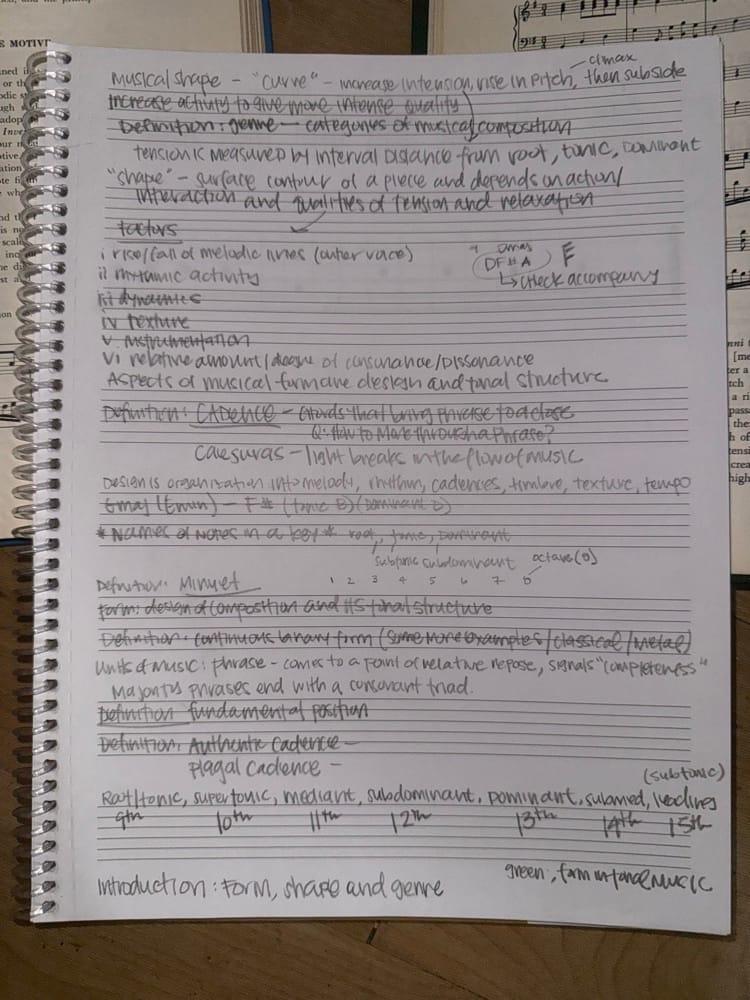 E MOTIVE
climax
Musical shape - "curve" - increase in tension, rise in pitch, then subside
increase activity to give more intense quality
Definition: genre - categories of musical composition
tension is measured by interval distance from root, tonic, dominant
"shape" - surface contour of a piece and depends on action/
interaction and qualities of tension and relaxation
factors
i rise/fall of melodic lines (outer voice)
DF#A F
ii rhythmic activity
↳ check accompany
iii dynamics
iv texture
v. instrumentation
vi relative amount/degree of consonance/dissonance
Aspects of musical form are design and tonal structure
Definition: CADENCE - chords that bring phrase to a close
Q: How to Move through a Phrase?
Caesuras - light breaks in the flow of music
Design is organization into melody, rhythm, cadences, timbre, texture, tempo
Emaj (Emin) - F# (tonic E) (Dominant
* Names of Notes in a key * root, tonic, dominant
subtonic subdominant octave (8)
Definition: Minuet 1 2 3 4 5 6 7 8
Form: design of composition and its tonal structure
Definition: continuous binary form (some more examples/classical/metal)
Units of Music: phrase - comes to a point of relative repose, signals "completeness"
Majority phrases end with a consonant triad.
Definition fundamental position
Definition: Authentic Cadence -
Plagal Cadence -
(subtonic)
Root/tonic, supertonic, mediant, subdominant, dominant, submed,
9th 10th 11th 12th 13th 14th 15th
green: form in tonal MUSIC
Introduction: Form, shape and genre